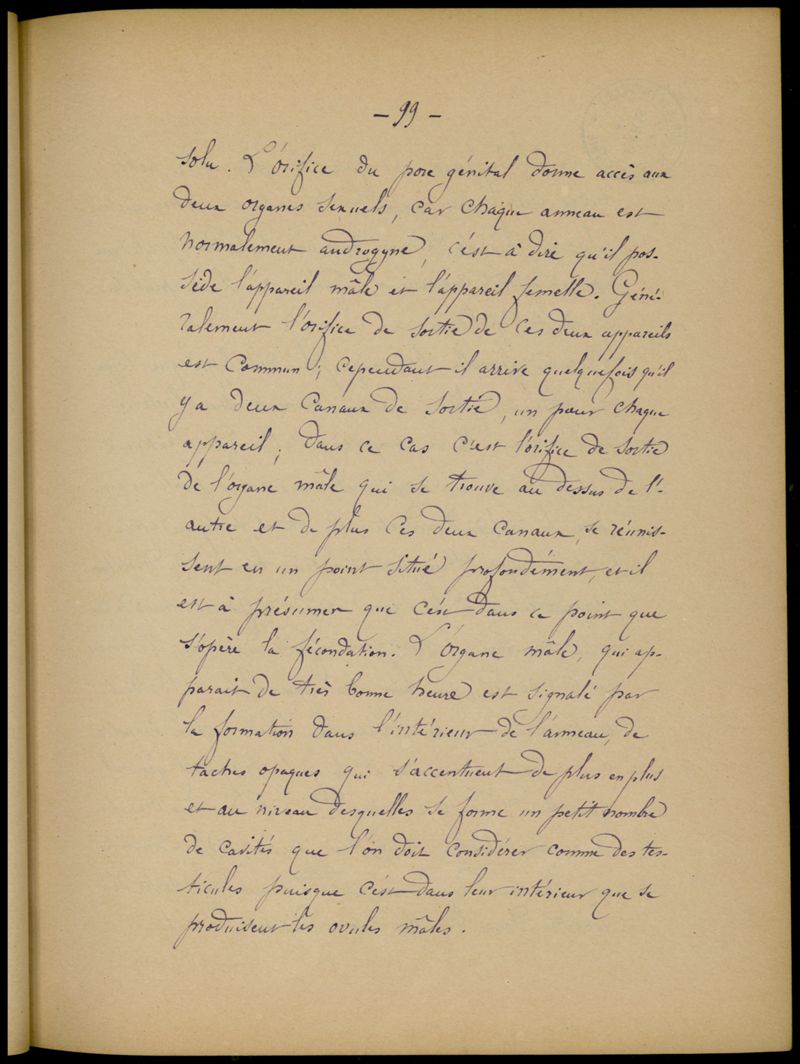 - 99 -
solu. L'orifice du pore génital donne accès aux
deux organes sexuels, car chaque anneau est
normalement androgyne, c'est à dire qu'il pos-
sède l'appareil mâle et l'appareil femelle. Géné-
ralement l'orifice de sortie de ces deux appareils
est commun ; cependant il arrive quelquefois qu'il
y a deux canaux de sortie, un pour chaque
appareil ; dans ce cas c'est l'orifice de sortie
de l'organe mâle qui se trouve au dessus de l'-
autre et de plus ces deux canaux, se réunis-
sent en un point situé profondément, et il
est à présumer que c'est dans ce point que
s'opère la fécondation. L'organe mâle, qui ap-
parait de très bonne heure est signalé par
la formation dans l'intérieur de l'anneau, de
taches opaques qui s'accentuent de plus en plus
et au niveau desquelles se forme un petit nombre
de cavités que l'on doit considérer comme des tes-
ticules puisque c'est dans leur intérieur que se
produisent les ovules mâles.